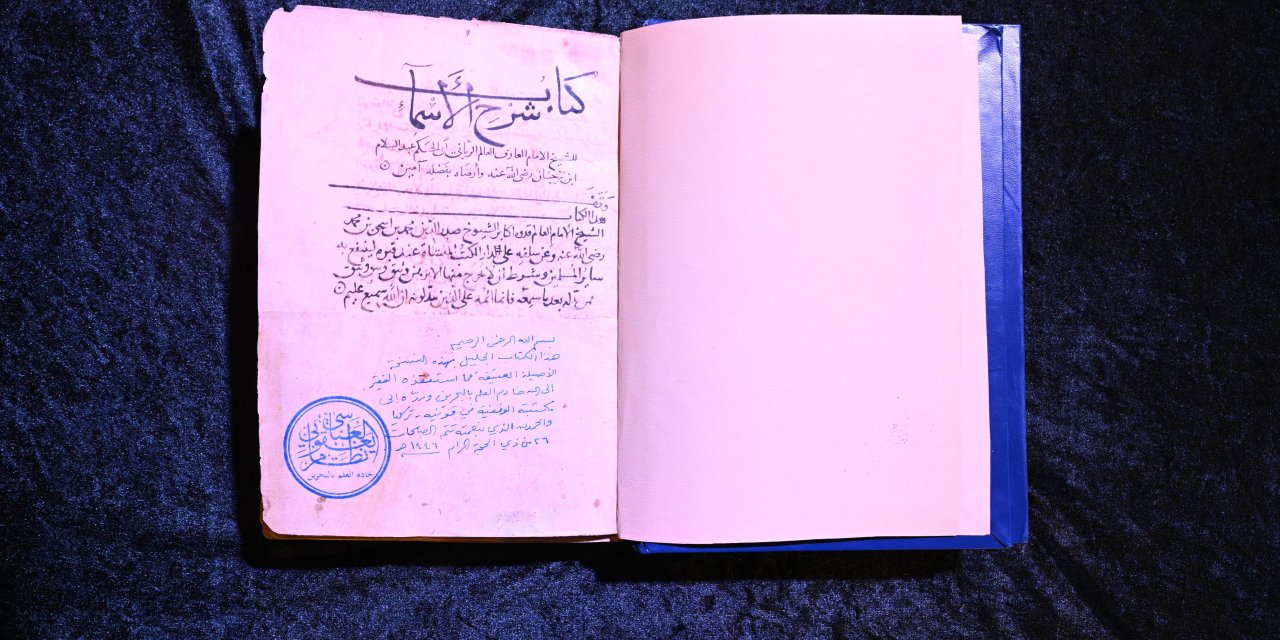 كتاب
شرح الأسماء
للشيخ الامام العارف العالم الرباني أبي الحكم عبد السلام
ابن برجان رضي الله عنه وأرضاه بفضله آمين
وقف
هذا الكتاب
الشيخ الامام العالم قدوة اكابر الشيوخ صدر الدين محمد بن اسحق بن محمد
رضي الله عنه وعن سلفه على دار الكتب المنشاة عند قبره لينتفع به
سائر المسلمين وشرط ان لا يخرج منها الا برهن وثيق
فمن بدله بعدما سمعه فانما اثمه على الذين يبدلونه ان الله سميع عليم
بسم الله الرحمن الرحيم
هذا الكتاب الجليل بهذه النسخة
الأصيلة العتيقة مما استنقذه الفقير
إلى الله خادم العلم بالبحرين ورده إلى
مكتبته الوقفية في قونية - تركيا
والحمد لله الذي بنعمته تتم الصالحات
٢٦ من ذي الحجة الحرام ١٤٤٦ هـ
نظام يعقوبي العباسي
خادم العلم بالبحرين